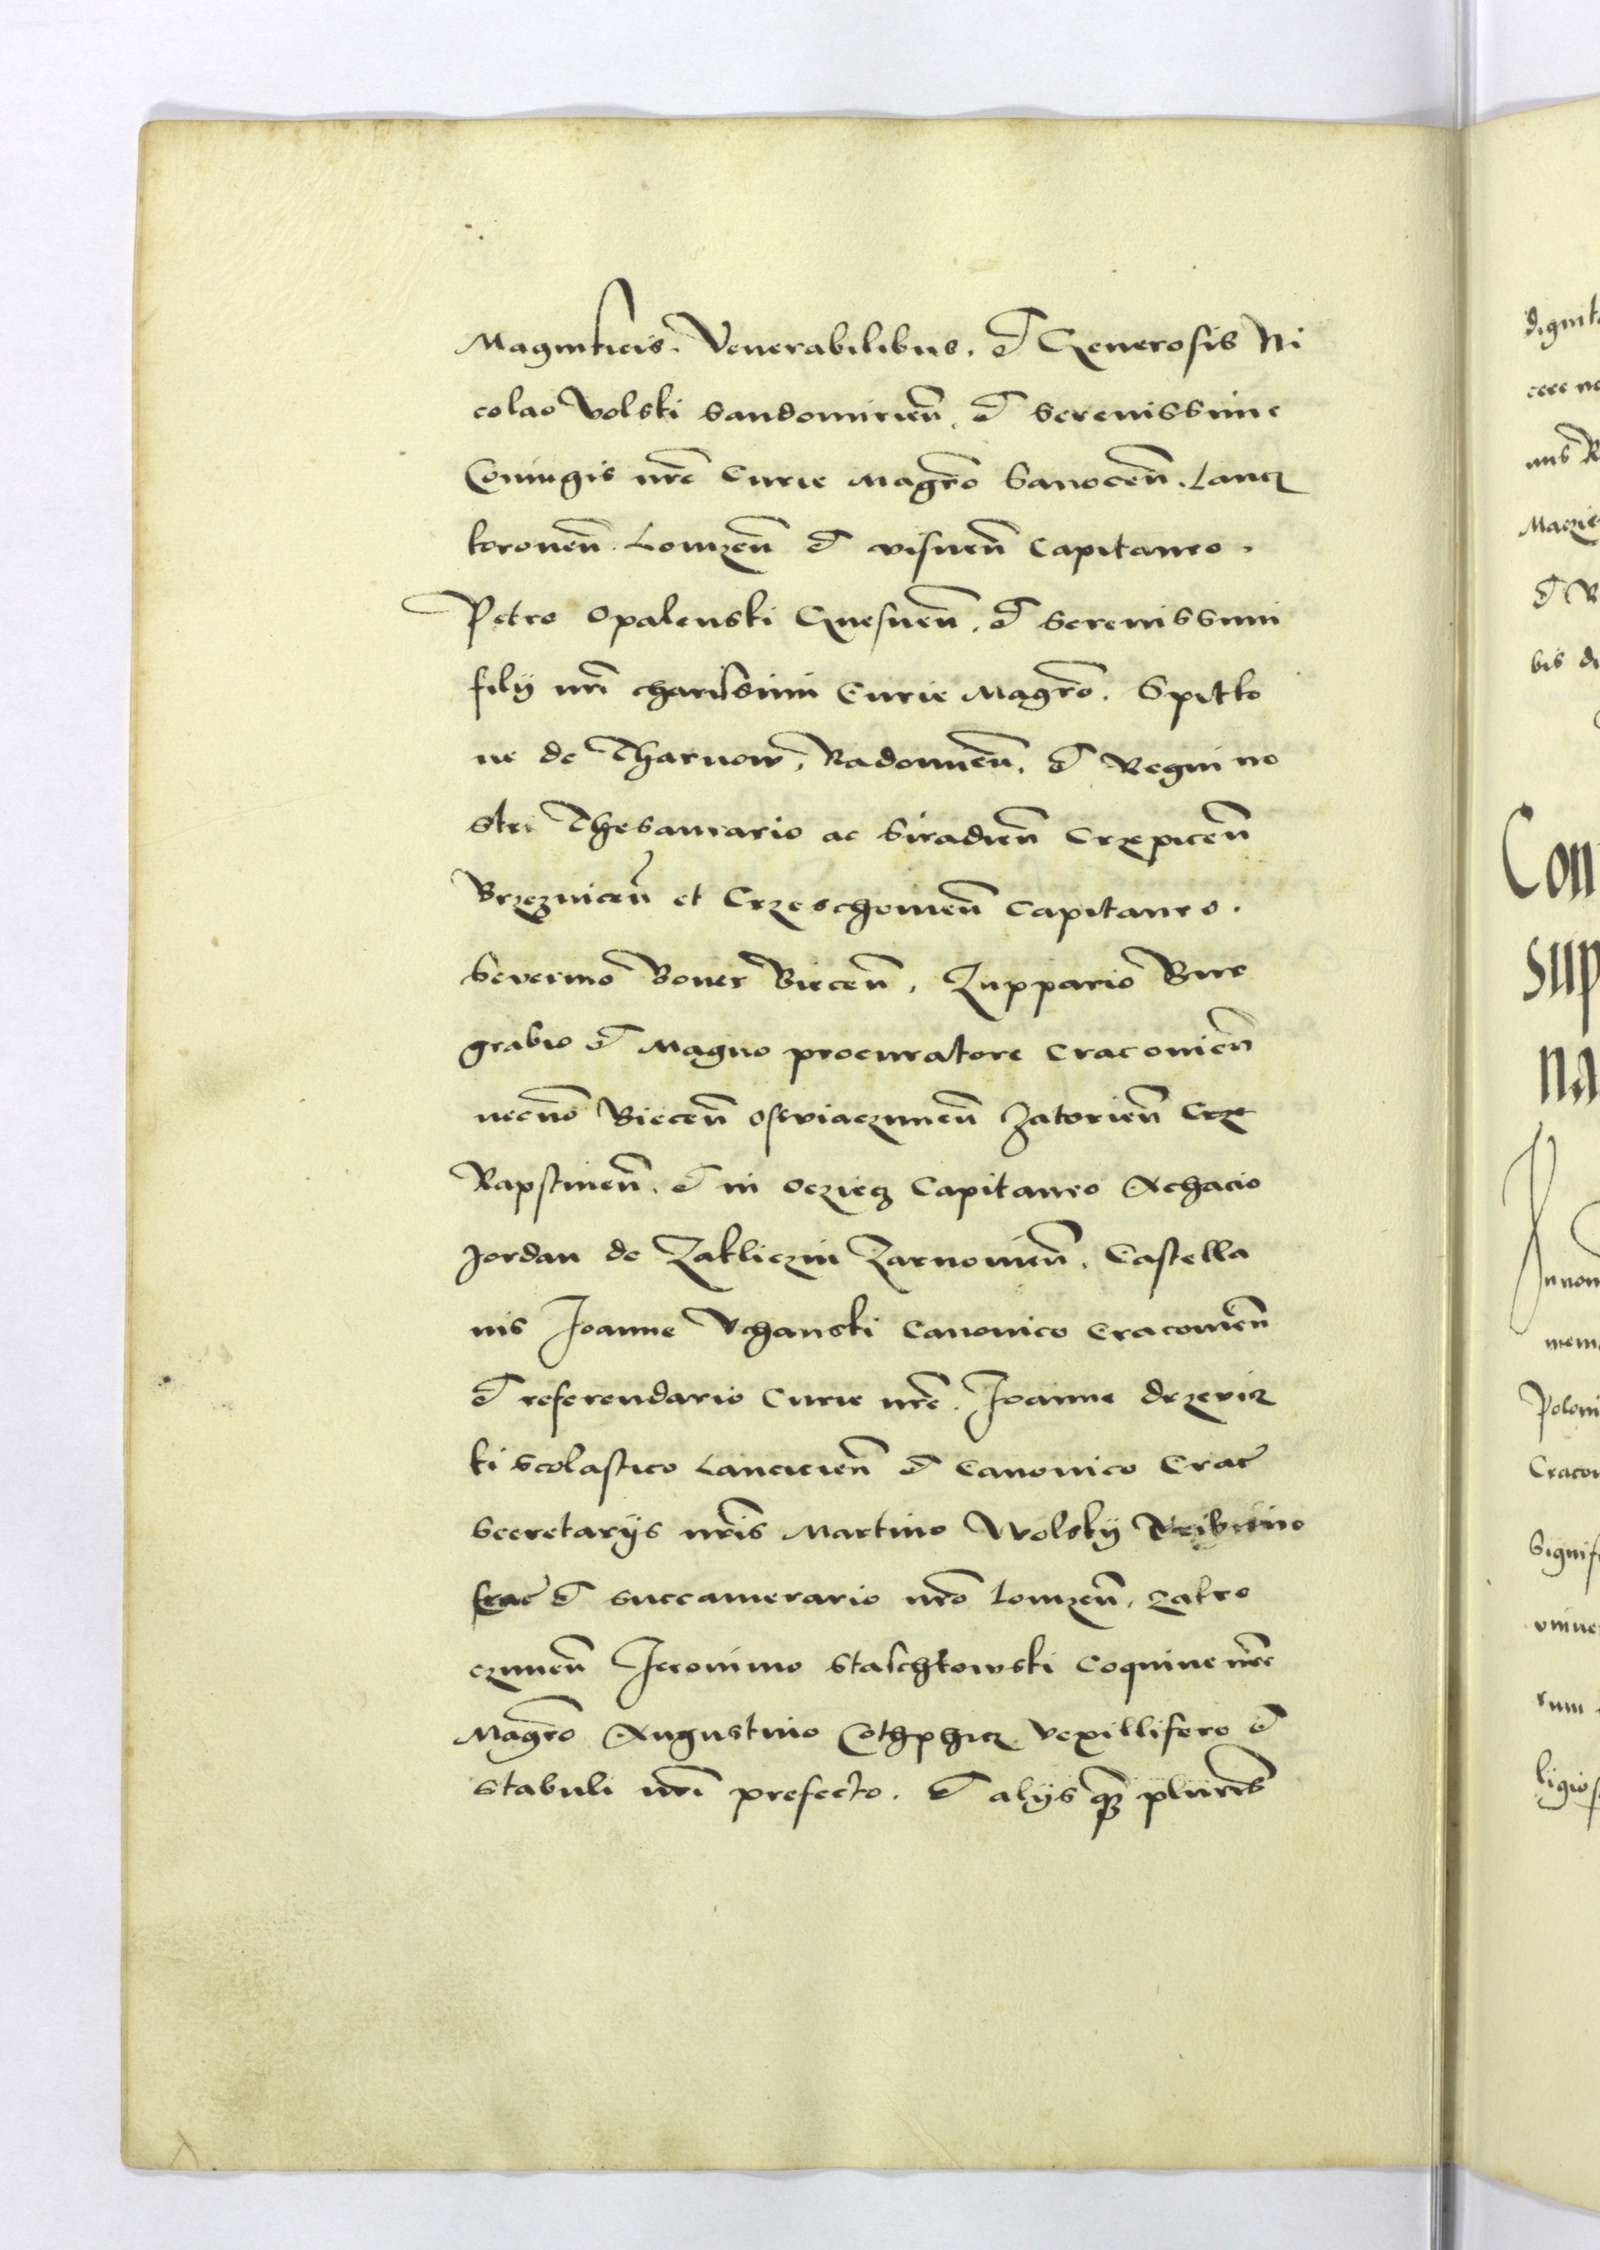 Magnificis. Venerabilibus. et Generosis Ni
colao Volski Sandomirien̄. et Serenissime
Coniugis nr̄e Curie Magr̄o Sanocen̄. Lancz
koronen̄. Lomzen̄ et visnen̄ Capitaneo.
Petro Opalenski Gnesnen̄. et Serenissimi
filij nr̄i charissimi Curie Magr̄o. Spitko
ne de Tharnow, Radomien̄. et Regni no
stri Thesaurario ac Siradien̄ Crzepicen̄
Brzeznicen̄ et Crzeschowien̄ Capitaneo.
Severino Boner Biecen̄, Zuppario Bur
grabio et Magno procuratore Cracouien̄
necno̅ Biecen̄ Osswiaczimen̄ Zatorien̄ Cze
Rapstinen̄. et in Ocziecz Capitaneo Achacio
Jordan de Zakliczin Zarnowien̄. Castella
nis Joanne Vchanski Canonico Cracouien̄
et referendario Curie nr̄e. Joanne drzewicz
ki Scolastico Lancicien̄ et Canonico Crac̄
Secretarijs nr̄is Martino Wolskij Tribuno
Crac̄ et succamerario nr̄o Lomzen̄. Zakro
czimen̄ Jeronimo Staschkowski Coquine nr̄e
Magr̄o Augustino Cothphicz Vexillifero et
stabuli nr̄i prefecto. et alijs qz̄ plurib̄
dignit
Con
sup
na
Polon
Craco
Signif